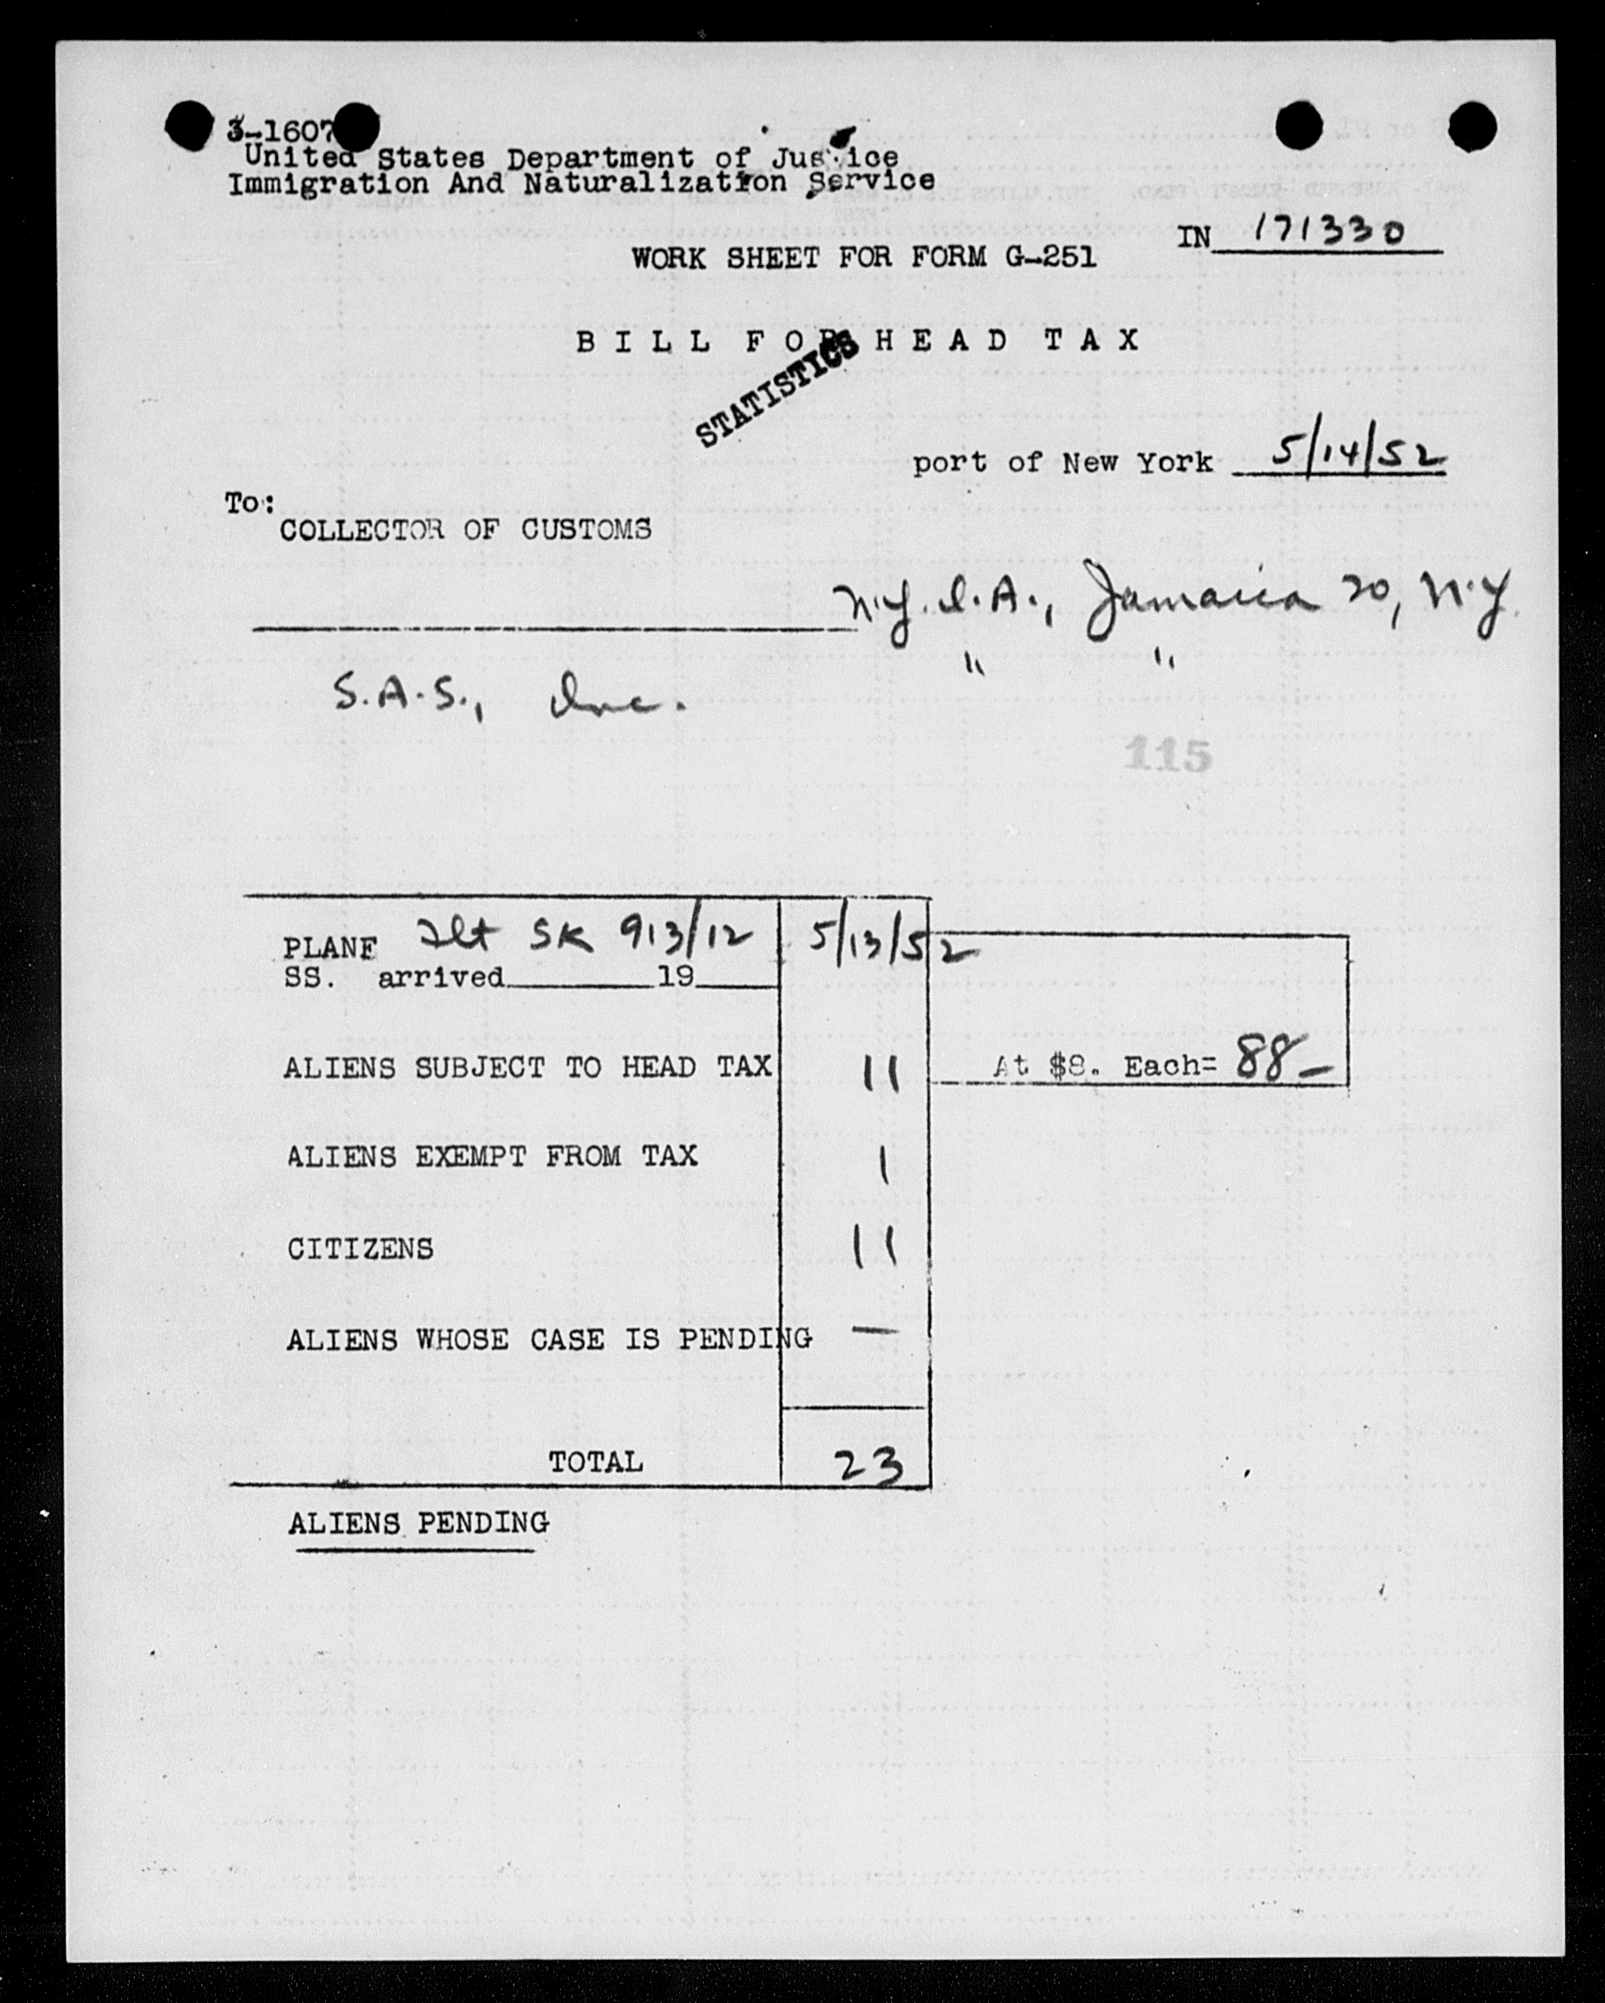 3-1607
United States Department of Justice
Immigration And Naturalization Service
IN 171330
WORK SHEET FOR FORM G-251
BILL FOR HEAD TAX
STATISTICS
port of New York 5/14/52
To:
COLLECTOR OF CUSTOMS
N.Y.I.A., Jamaica 20, N.Y.
" "
S.A.S., Inc.
115
PLANE Flt SK 913/12 5/13/52
SS. arrived 19
ALIENS SUBJECT TO HEAD TAX 11 At $8. Each= 88-
ALIENS EXEMPT FROM TAX 1
CITIZENS 11
ALIENS WHOSE CASE IS PENDING -
TOTAL 23
ALIENS PENDING